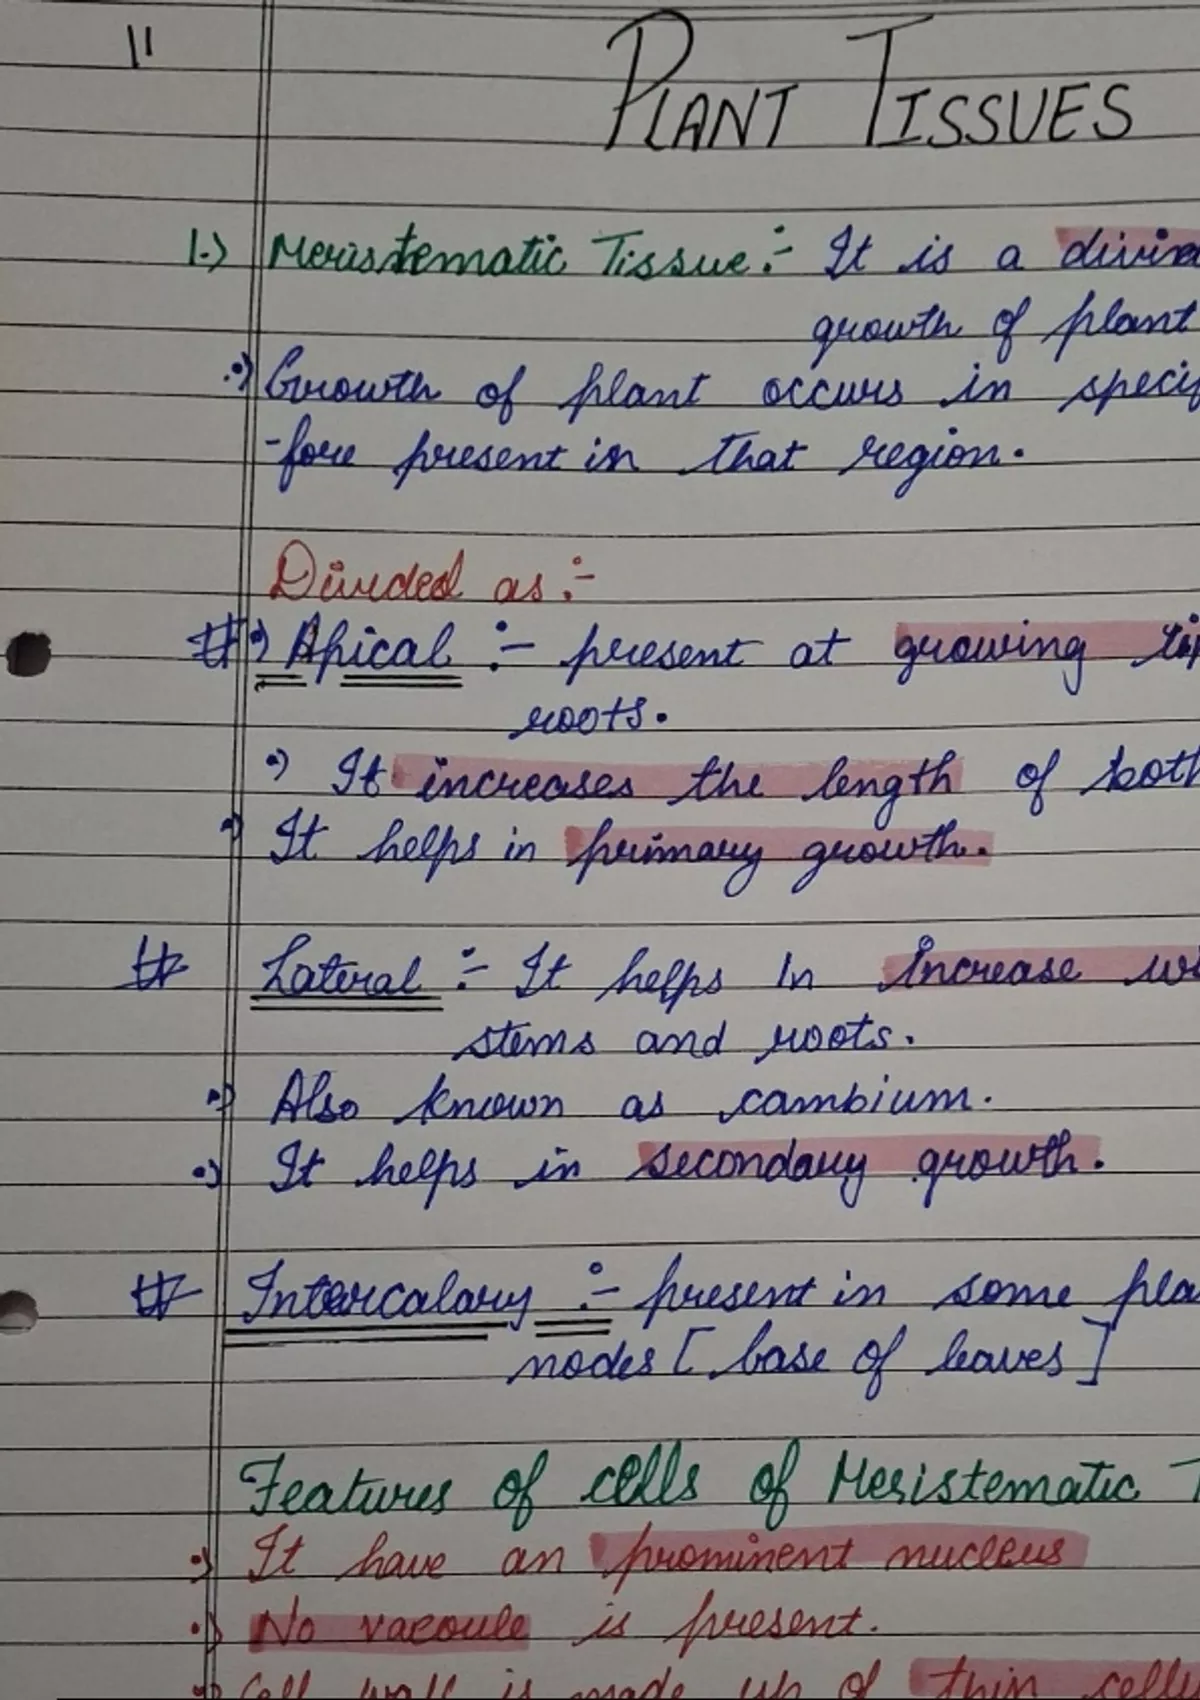 11
PLANT TISSUES
1.) Meristematic Tissue:- It is a
growth of plant
•) Growth of plant occurs in
-fore present in that region.
Divided as :-
# •) Apical :- present at growing
roots.
•) It increases the length of
•) It helps in primary growth.
# Lateral :- It helps In Increase
stems and roots.
•) Also known as cambium.
•) It helps in secondary growth.
# Intercalary :- present in some
nodes [base of leaves]
Features of cells of Meristematic
•) It have an prominent nucleus
•) No vacoule is present.
•) Cell wall is made up of thin